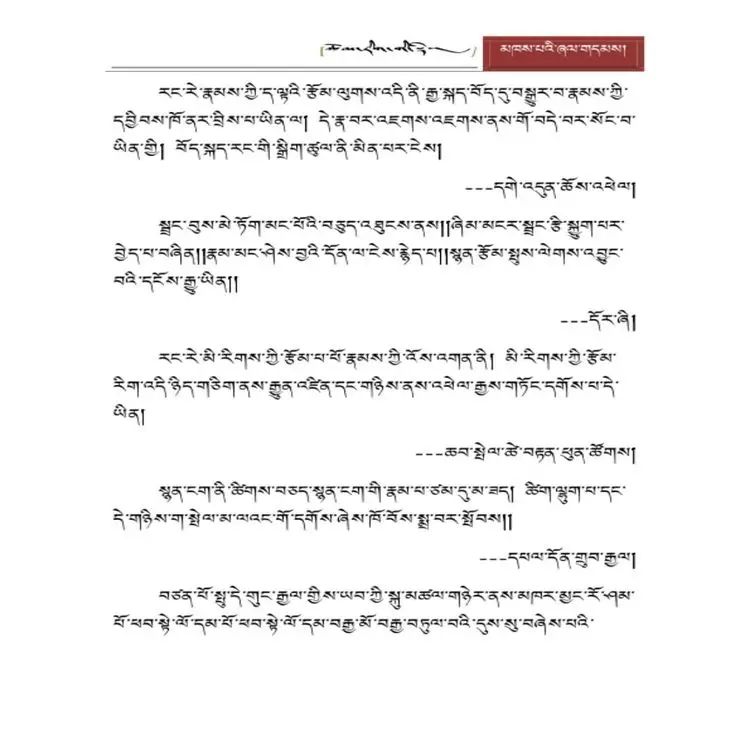 མཁས་པའི་ཞལ་གདམས།
རང་རེ་རྣམས་ཀྱི་ད་ལྟའི་རྩོམ་ལུགས་འདི་ནི་རྒྱ་སྐད་བོད་དུ་བསྒྱུར་བ་རྣམས་ཀྱི་
དབྱིབས་ཁོ་ནར་བྲིས་པ་ཡིན་ལ། དེ་རྣ་བར་འཇགས་འཇགས་ནས་གོ་བདེ་བར་སོང་བ་
ཡིན་གྱི། བོད་སྐད་རང་གི་སྒྲིག་ཚུལ་ནི་མིན་པར་ངེས།
---དགེ་འདུན་ཆོས་འཕེལ།
སྦྲང་བུས་མེ་ཏོག་མང་པོའི་བཅུད་འཐུངས་ནས།།ཞིམ་མངར་སྦྲང་རྩི་སྐྱུག་པར་
བྱེད་པ་བཞིན།།རྣམ་མང་ཤེས་བྱའི་དོན་ལ་ངེས་རྙེད་པ།།སྙན་རྩོམ་སྤུས་ལེགས་འབྱུང་
བའི་དངོས་རྒྱུ་ཡིན།།
---དོར་ཞི།
རང་རེ་མི་རིགས་ཀྱི་རྩོམ་པ་པོ་རྣམས་ཀྱི་འོས་འགན་ནི། མི་རིགས་ཀྱི་རྩོམ་
རིག་འདི་ཉིད་གཅིག་ནས་རྒྱུན་འཛིན་དང་གཉིས་ནས་འཕེལ་རྒྱས་གཏོང་དགོས་པ་དེ་
ཡིན།
---ཆབ་སྤེལ་ཚེ་བརྟན་ཕུན་ཚོགས།
སྙན་ངག་ནི་ཚིགས་བཅད་སྙན་ངག་གི་རྣམ་པ་ཙམ་དུ་མ་ཟད། ཚིག་ལྷུག་པ་དང་
དེ་གཉིས་ག་སྤེལ་མ་ལའང་གོ་དགོས་ཞེས་ཁོ་བོས་སྨྲ་བར་སྤོབས།།
---དཔལ་དོན་གྲུབ་རྒྱལ།
བཙན་པོ་སྤུ་དེ་གུང་རྒྱལ་གྱིས་ཡབ་ཀྱི་སྐུ་མཚལ་གཉེར་ནས་མཁར་མྱང་རོ་ཤམ་
པོ་ཕབ་སྟེ་ལོ་དམ་པོ་ཕབ་སྟེ་ལོ་དམ་བརྒྱ་མོ་བརྒྱ་བཏུལ་བའི་དུས་སུ་བཞེས་པའི་